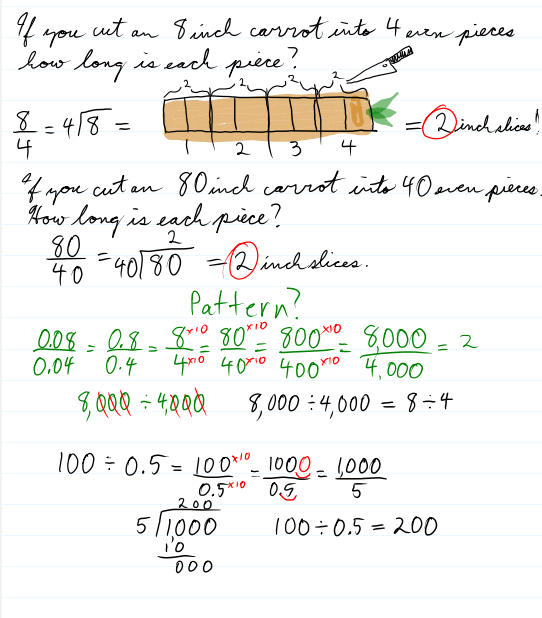 If you cut an 8 inch carrot into 4 even pieces
how long is each piece?
2 2 2 2
8/4 = 4⟌8 = = 2 inch slices!
1 2 3 4
If you cut an 80 inch carrot into 40 even pieces.
How long is each piece?
2
80/40 = 40⟌80 = 2 inch slices.
Pattern?
0.08/0.04 = 0.8/0.4 = 8×10/4×10 = 80×10/40×10 = 800×10/400×10 = 8,000/4,000 = 2
8,000 ÷ 4,000 8,000 ÷ 4,000 = 8 ÷ 4
100 ÷ 0.5 = 100×10/0.5×10 = 1000/0.5 = 1,000/5
200
5⟌1,000 100 ÷ 0.5 = 200
10
000